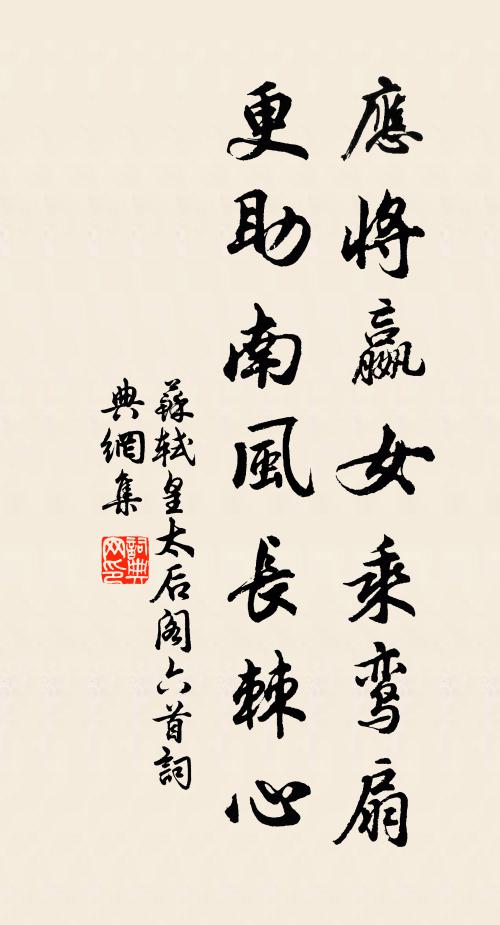 應將嬴女乘鸞扇
更助南風長棘心
蘇軾皇太后閣六首詞
典網集
詞典
网印